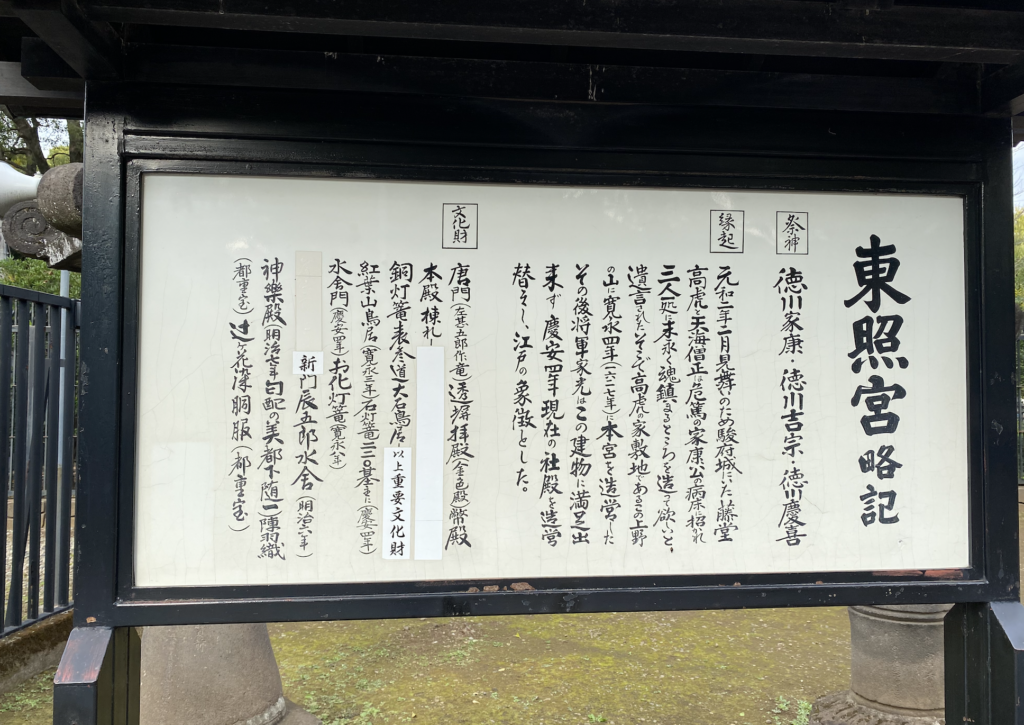 東照宮略記
祭神
徳川家康、徳川吉宗、徳川慶喜
縁起
元和二年二月見舞いのため駿府城にいた藤堂
高虎と天海僧正は危篤の家康公の病床に招かれ
三人一処に末永く魂鎮まるところを造って欲しいと、
遺言された。そこで高虎の家敷地であるこの上野
の山に寛永四年(一六二七年)に本宮を造営した
その後将軍家光はこの建物に満足出
来ず慶安四年現在の社殿を造営
替えし、江戸の象徴とした。
文化財
唐門(左甚五郎作竜)透塀拝殿(金色殿)幣殿
本殿棟札一
銅灯篭表参道大石鳥居 以上重要文化財
紅葉山鳥居(寛永三年)石灯篭二三〇基主に(慶安四年)
水舎門(慶安四年)お化灯篭(寛永八年)
新門辰五郎水舎(明治六年)
神樂殿(明治七年)勾配の美都下随一陣羽織
(都重宝)辻ヶ花染胴服(都重宝)